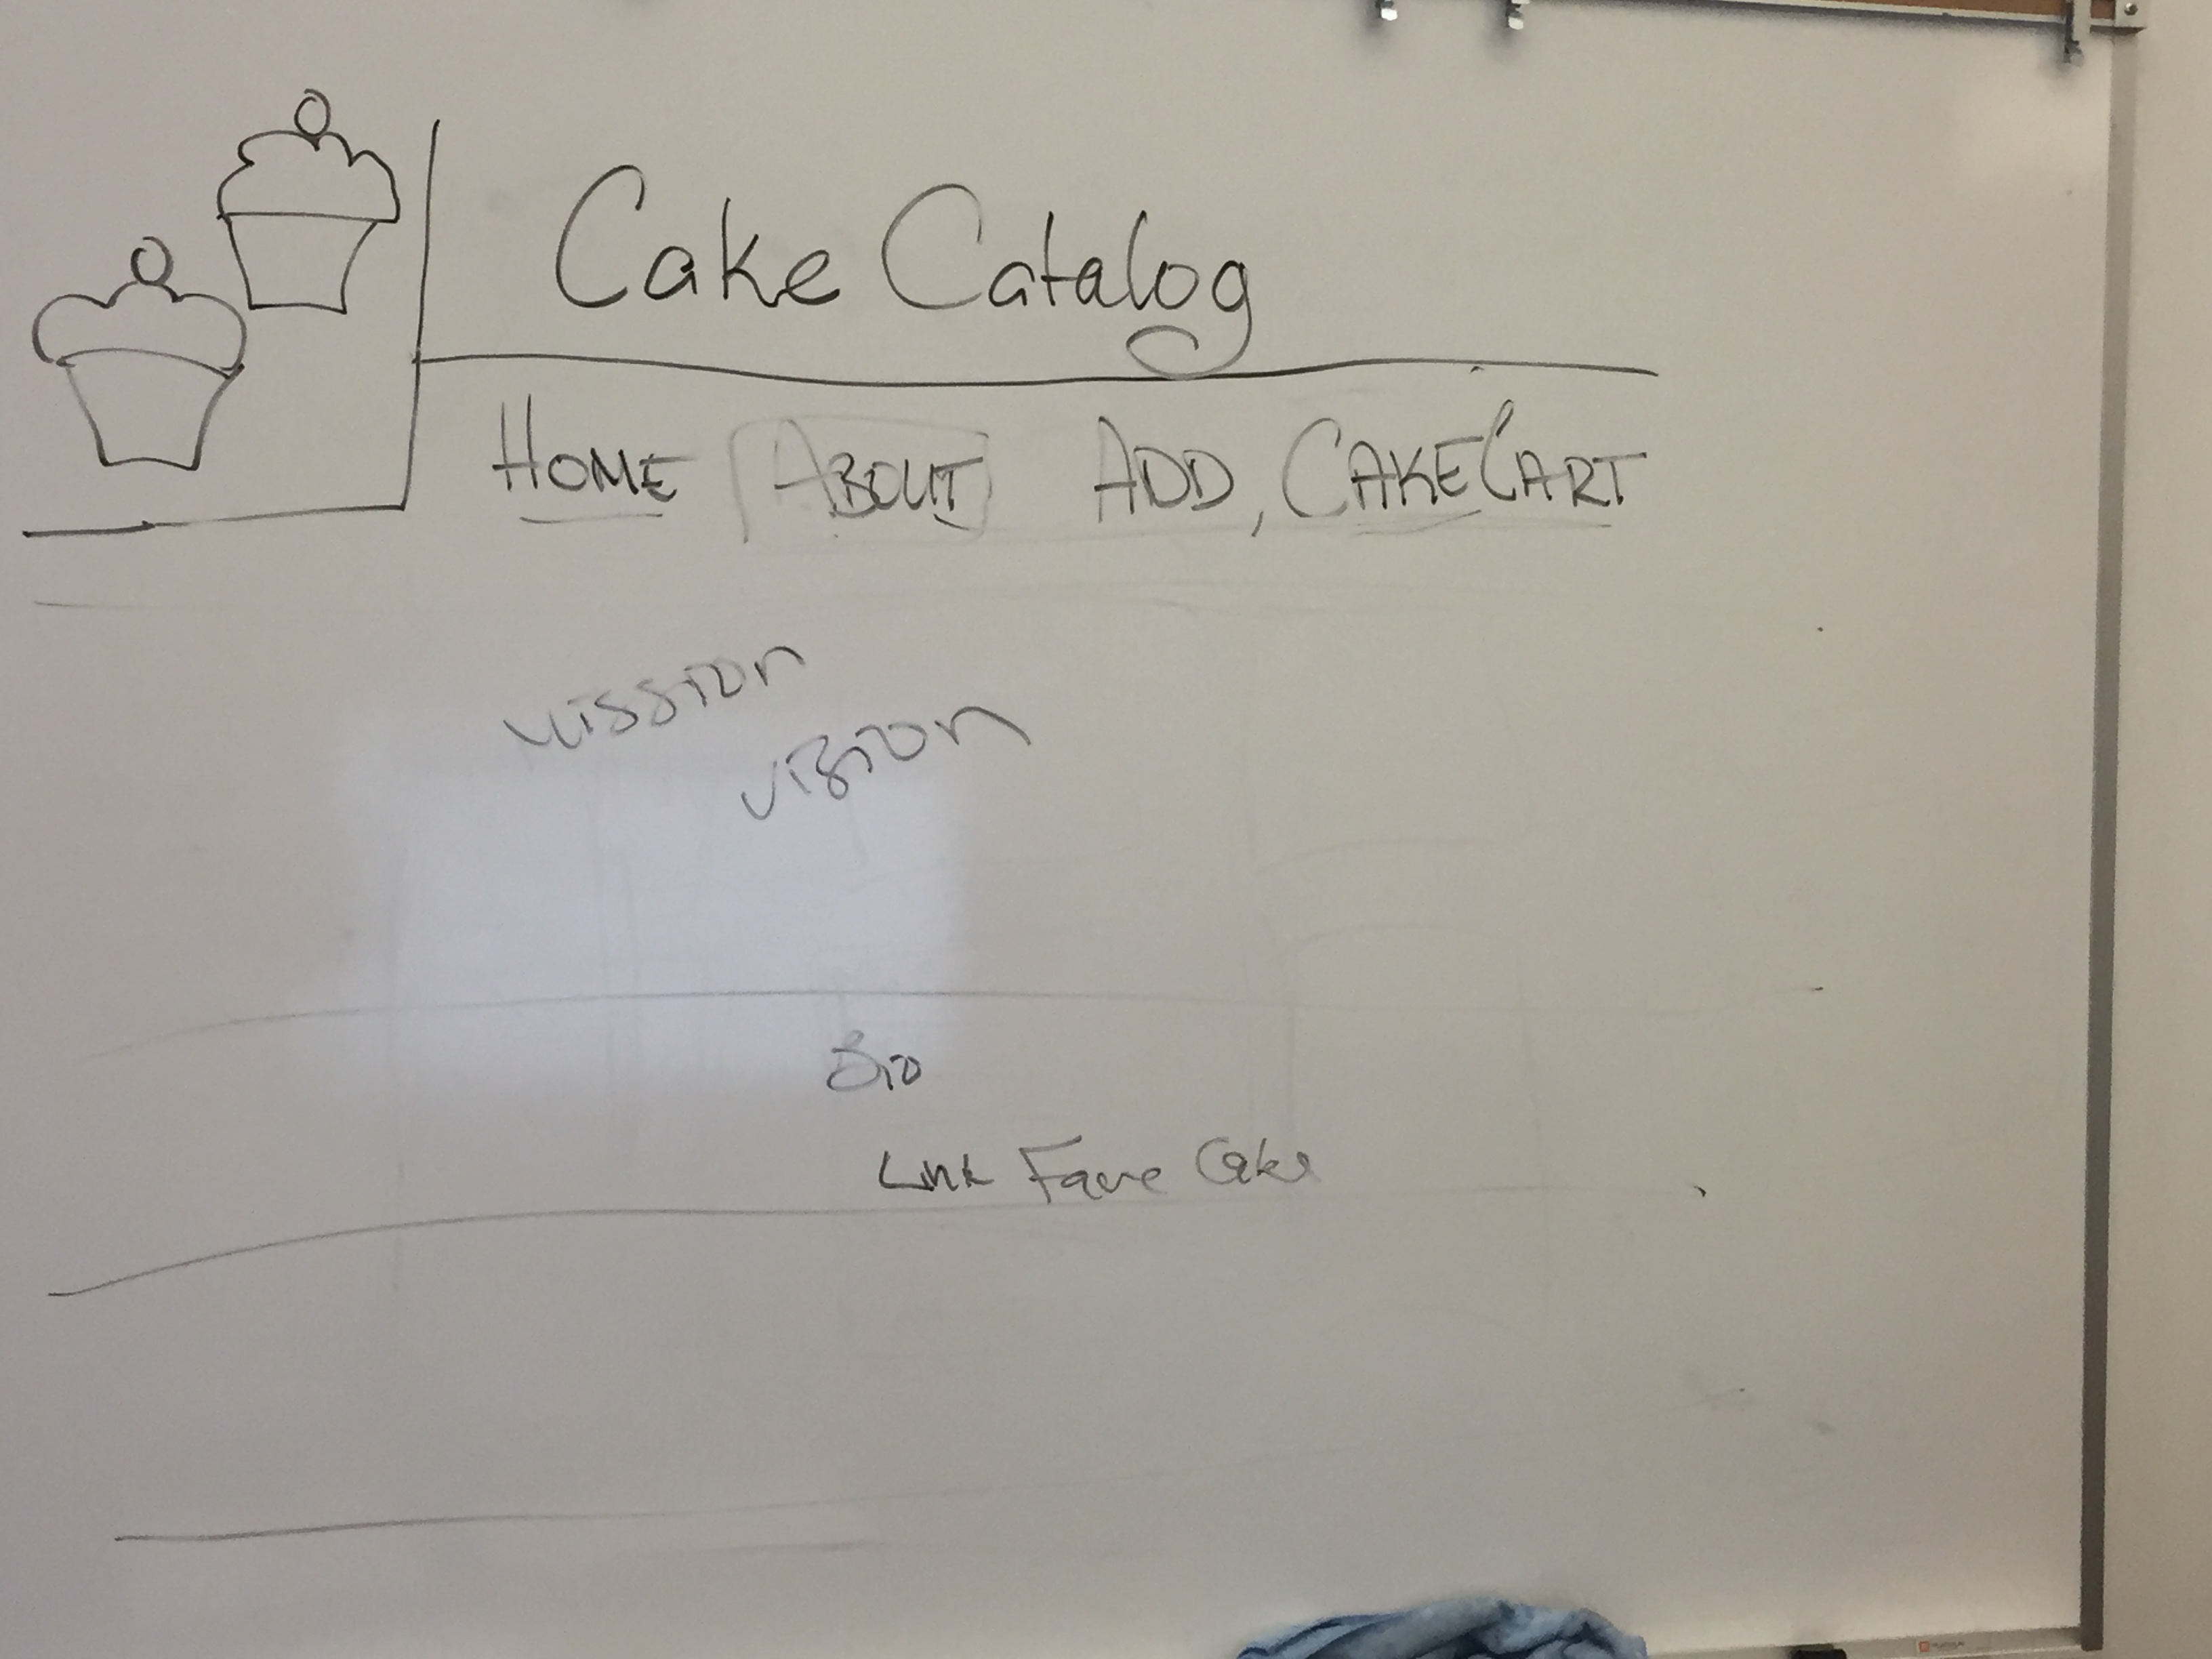 Cake Catalog
HOME ABOUT ADD, CAKECART
mission
vision
Bio
Link Fave Cake